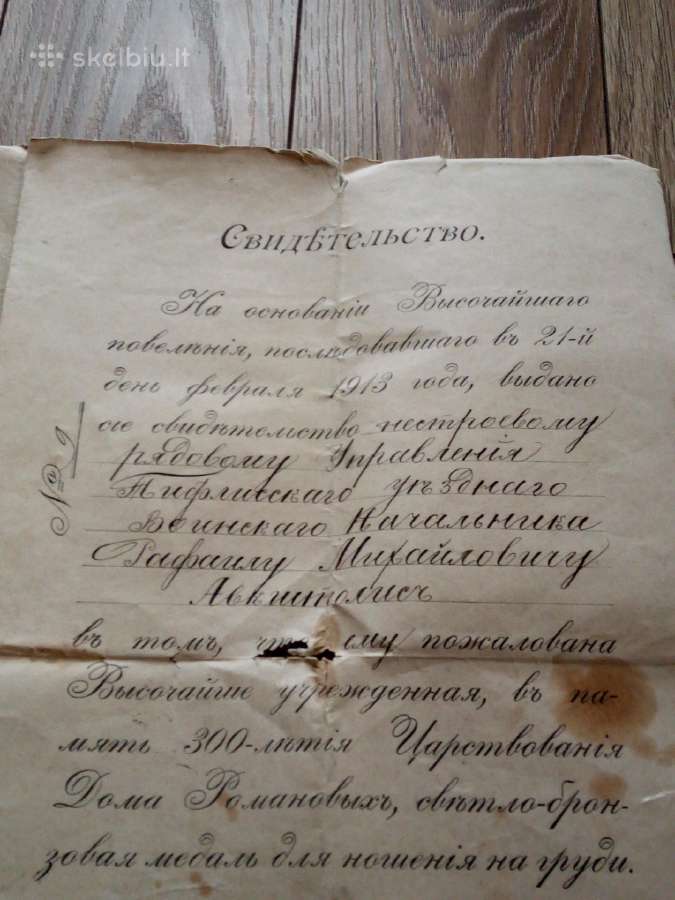 skelbiu.lt
Свидѣтельство.
На основаніи Высочайшаго
повелѣнія, послѣдовавшаго въ 21-й
день февраля 1913 года, выдано
сіе свидѣтельство нестроевому
рядовому Управленія
Тифлисскаго уѣзднаго
Воинскаго Начальника
Рафаилу Михайловичу
въ томъ, что ему пожалована
Высочайше учрежденная, въ па-
мять 300-лѣтія Царствованія
Дома Романовыхъ, свѣтло-брон-
зовая медаль для ношенія на груди.
№ 9